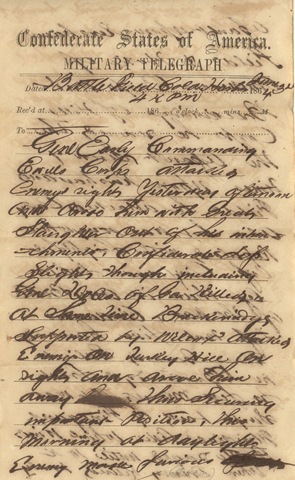 Confederate States of America.
MILITARY TELEGRAPH
Dated Battle Field Cold Harbor June 3d 186
4 PM
Rec'd at 186 o'clock, min.
To
Genl Early Commanding
Ewells Corps attacked
Enemys right Yesterday afternoon
and drove him with great
Slaughter out of his intren
chments Confederate loss
Slight though including
Genl Doles of Ga Killed
At Same time Breckinridge
Supported by Wilcox attacked
Enemy on Turkey Hill Our
right and drove them
away thus Securing
important Position, this
Morning at daylight
Enemy made furious